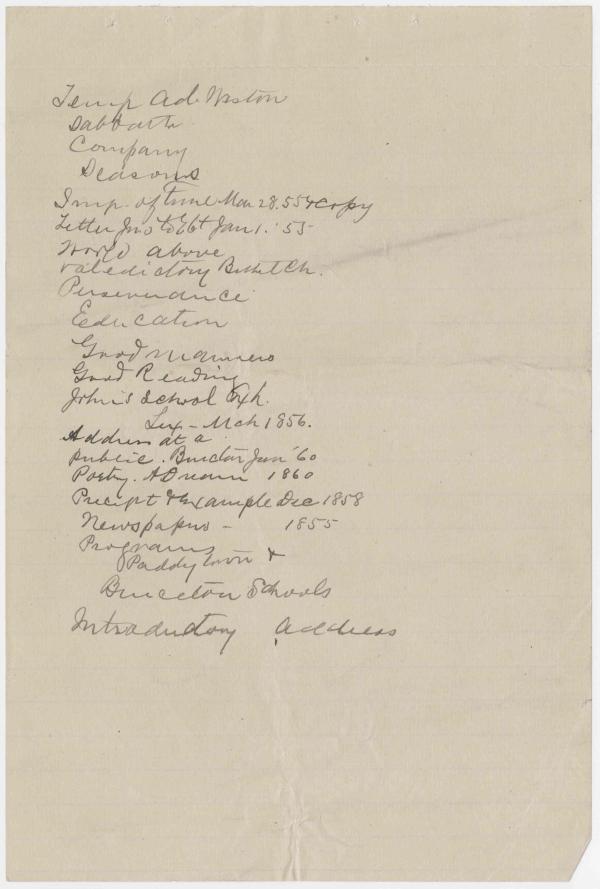 Temp Ad. Weston
Sabbath
Company
Seasons
Imp. of time Mar 28. 55 & copy
Letter Jno to Ebt Jan 1. '55
World above
Valedictory
Perseverance
Education
Good manners
Good Reading
John's School Exh.
Lex - Mch 1856.
Address at a
public. Bruceton Jan '60
Poetry. A Dream 1860
Precipt & Example Dec 1858
Newspapers - 1855
Programs
Paddytown &
Bruceton Schools
Introductory Address